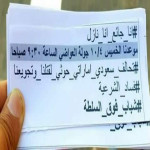 #انا_جائع_انا_نازل
موعدنا الخميس ١٠/٤ جولة العواضي الساعة ٩:٣٠ صباحا
#تحالف_سعودي_اماراتي_حوثي_لقتلنا_وتجويعنا
#فساد_الشرعية
#شباب_فوق_السلطة